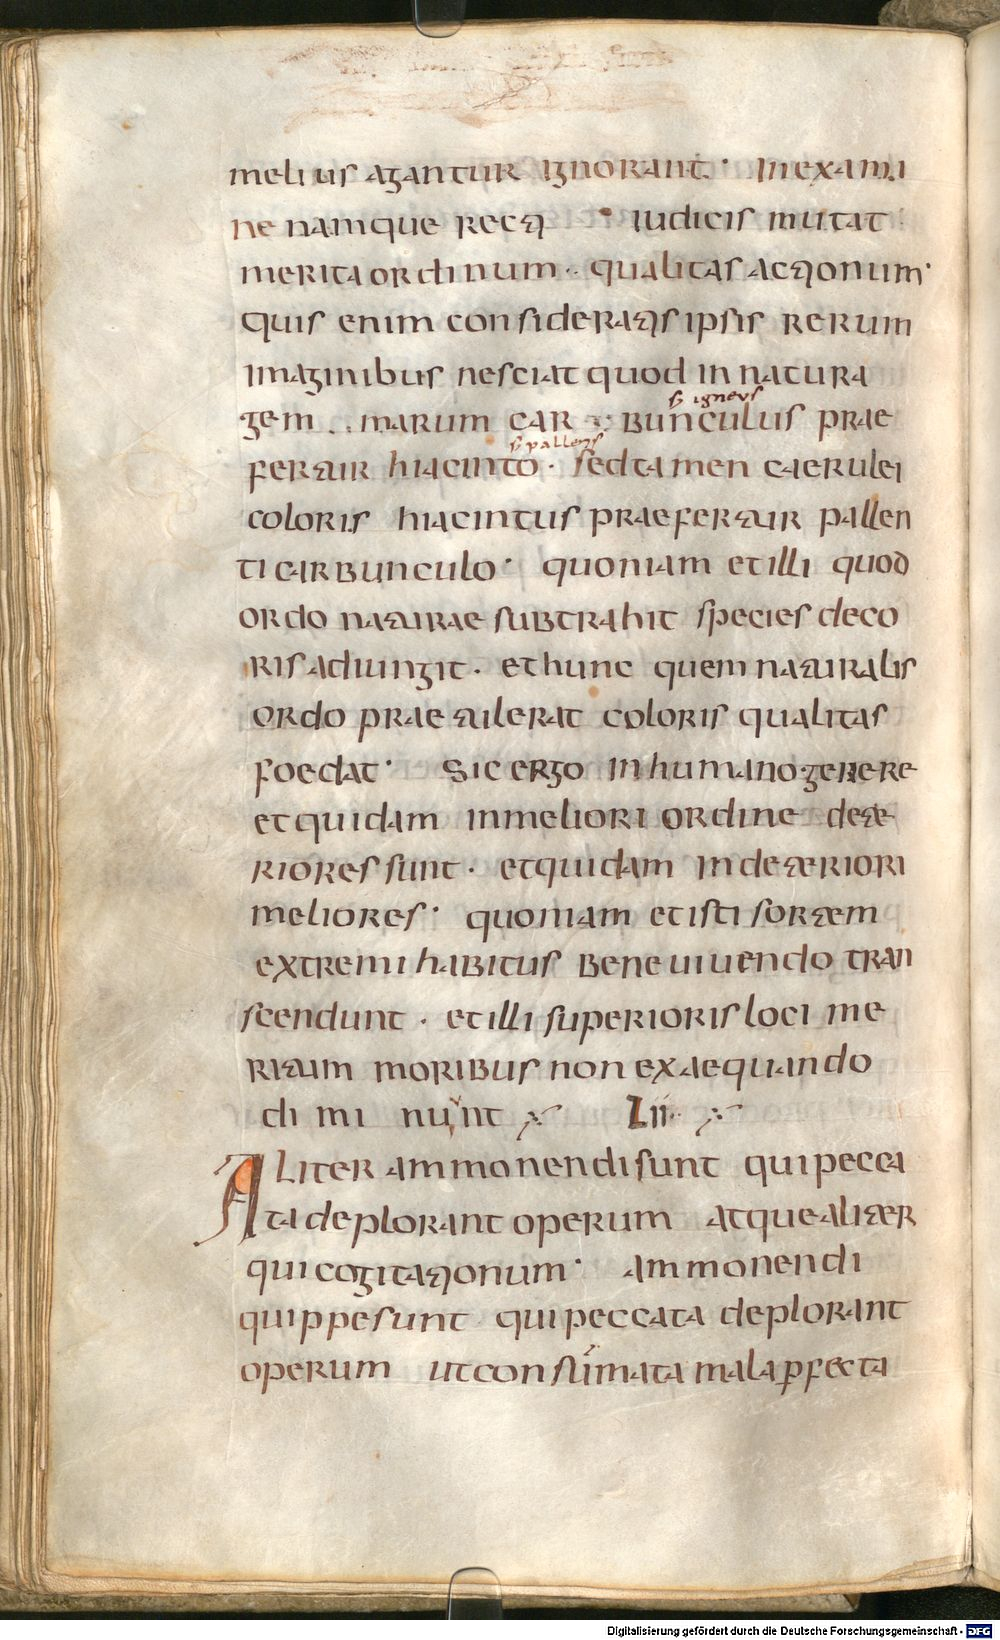 melius agantur ignorant· in exami
ne namque recti · iudicis mutat
merita ordinum·· qualitas actionum·
quis enim consideratis ipsis rerum
imaginibus nesciat quod in natura
gemmarum car bunculus prae
s igneus
fertur hiacinto· sed tamen caerulei
s pallens
coloris hiacintus praefertur pallen
ti carbunculo· quoniam et illi quod
ordo naturae subtrahit species deco
ris adiungit· et hunc quem naturalis
ordo praetulerat coloris qualitas
foedat· sic ergo in humano genere
et quidam in meliori ordine dete
riores sunt· et quidam in deteriori
meliores· quoniam et isti sortem
extremi habitus bene uiuendo tran
scendunt· et illi superioris loci me
ritum moribus non exaequando
di mi nunt Lii
Aliter ammonendi sunt qui pecca
ta deplorant operum atque aliter
qui cogitationum· ammonendi
quippe sunt qui peccata deplorant
operum ut consumata mala pfecta
Digitalisierung gefördert durch die Deutsche Forschungsgemeinschaft - DFG